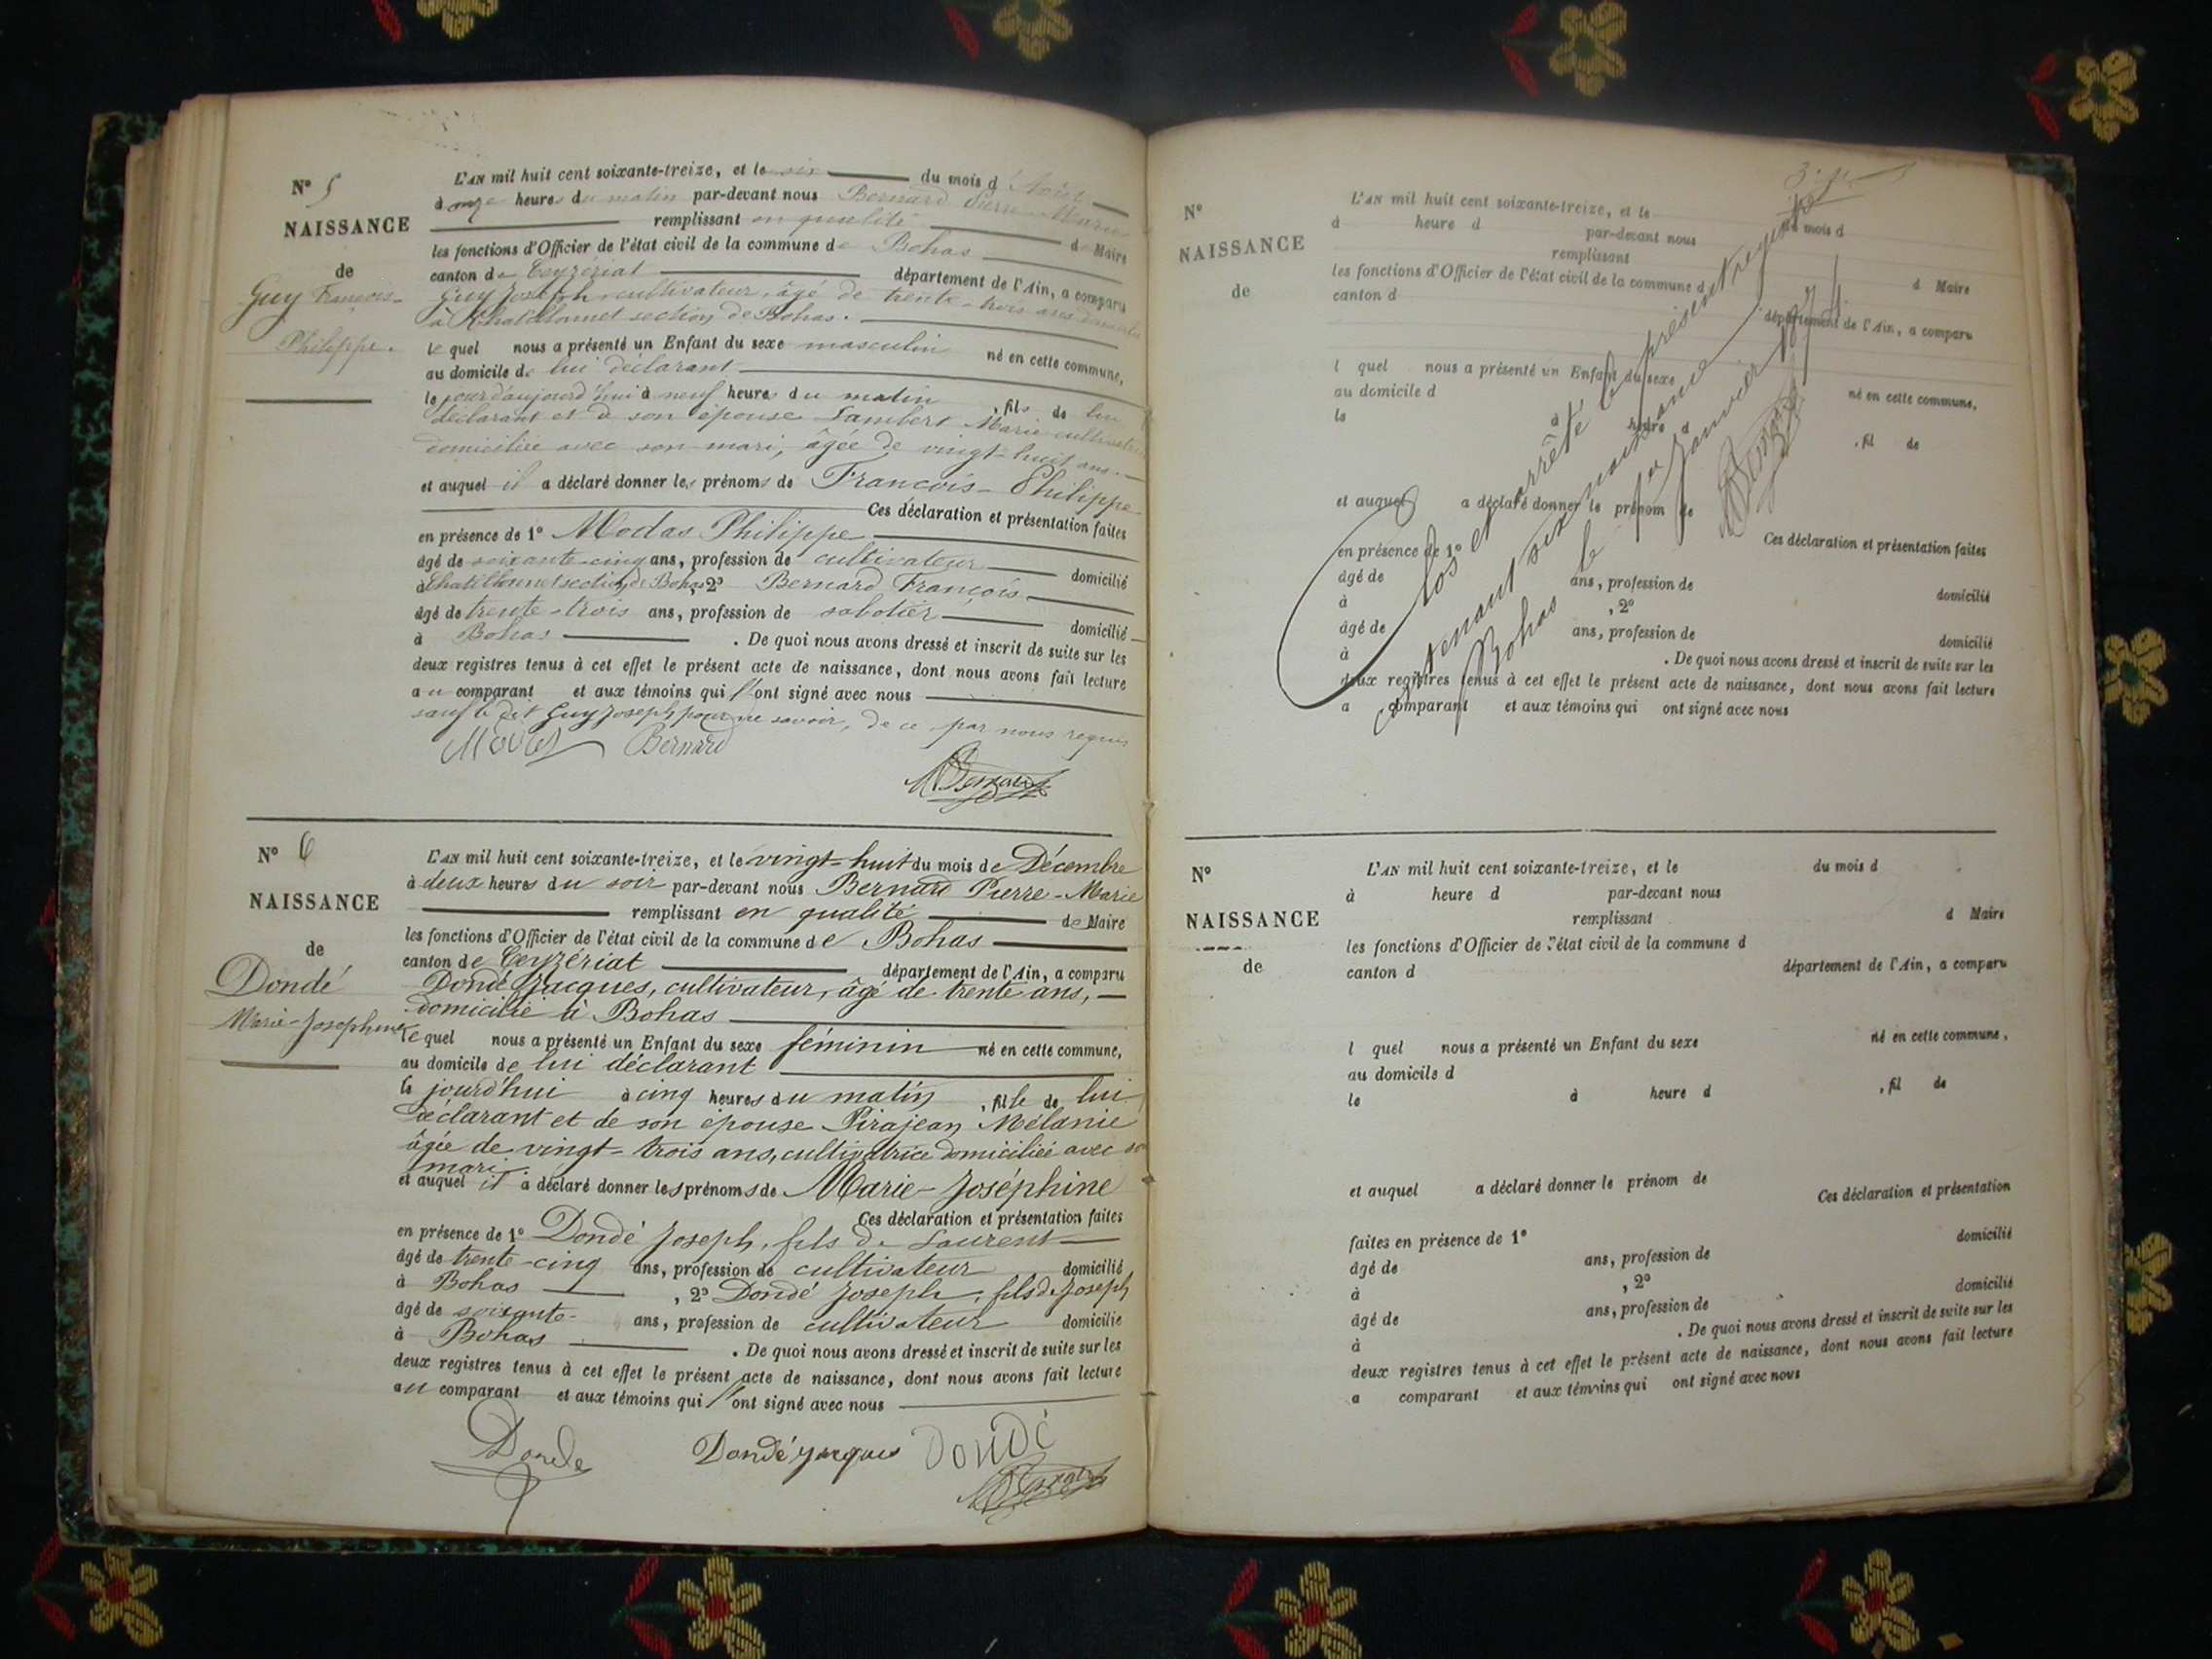 N° 5
NAISSANCE
de
Guy François-
Philippe.
L'AN mil huit cent soixante-treize, et le six du mois d'Août
à onze heures du matin par-devant nous Bernard Pierre-Marie
remplissant en qualité de Maire
les fonctions d'Officier de l'état civil de la commune de Bohas
canton de Ceyzériat département de l'Ain, a comparu
Guy Joseph, cultivateur, âgé de trente-trois ans
à section de Bohas.
le quel nous a présenté un Enfant du sexe masculin né en cette commune,
au domicile de lui déclarant
le jour d'aujourd'hui à neuf heures du matin, fils de lui
déclarant et de son épouse Lambert Marie
domiciliée avec son mari, âgée de vingt-huit ans.
et auquel il a déclaré donner les prénoms de François-Philippe
Ces déclaration et présentation faites
en présence de 1° Modas Philippe
âgé de soixante-cinq ans, profession de cultivateur domicilié
à section de Bohas, 2° Bernard François
âgé de trente-trois ans, profession de sabotier domicilié
à Bohas . De quoi nous avons dressé et inscrit de suite sur les
deux registres tenus à cet effet le présent acte de naissance, dont nous avons fait lecture
au comparant et aux témoins qui l'ont signé avec nous
sauf le dit Guy Joseph pour ne savoir, de ce par nous requis
Bernard
N° 6
NAISSANCE
de
Dondé
Marie-Josephine
L'AN mil huit cent soixante-treize, et le vingt-huit du mois de Décembre
à deux heures du soir par-devant nous Bernard Pierre-Marie
remplissant en qualité de Maire
les fonctions d'Officier de l'état civil de la commune de Bohas
canton de Ceyzériat département de l'Ain, a comparu
Dondé Jacques, cultivateur, âgé de trente ans,
domicilié à Bohas
le quel nous a présenté un Enfant du sexe féminin né en cette commune,
au domicile de lui déclarant
le jourd'hui à cinq heures du matin, fille de lui
déclarant et de son épouse Pirajean Mélanie
âgée de vingt-trois ans, cultivatrice domiciliée avec son
mari.
et auquel il a déclaré donner les prénoms de Marie-Joséphine
Ces déclaration et présentation faites
en présence de 1° Dondé Joseph, fils de Laurent
âgé de trente-cinq ans, profession de cultivateur domicilié
à Bohas, 2° Dondé Joseph, fils de Joseph
âgé de soixante- ans, profession de cultivateur domicilié
à Bohas . De quoi nous avons dressé et inscrit de suite sur les
deux registres tenus à cet effet le présent acte de naissance, dont nous avons fait lecture
au comparant et aux témoins qui l'ont signé avec nous
Dondé Dondé Jacques Dondé
N°
NAISSANCE
de
L'AN mil huit cent soixante-treize, et le du mois d
à heure d par-devant nous
remplissant d Maire
les fonctions d'Officier de l'état civil de la commune d
canton d département de l'Ain, a comparu
l quel nous a présenté un Enfant du sexe né en cette commune,
au domicile d
le à heure d , fil de
et auquel a déclaré donner le prénom de
Ces déclaration et présentation faites
en présence de 1°
âgé de ans, profession de domicilié
à , 2°
âgé de ans, profession de domicilié
à . De quoi nous avons dressé et inscrit de suite sur les
deux registres tenus à cet effet le présent acte de naissance, dont nous avons fait lecture
a comparant et aux témoins qui ont signé avec nous
Clos et arrêté le présent registre
contenant six naissances
Bohas le 1er Janvier 1874
N°
NAISSANCE
de
L'AN mil huit cent soixante-treize, et le du mois d
à heure d par-devant nous
remplissant d Maire
les fonctions d'Officier de l'état civil de la commune d
canton d département de l'Ain, a comparu
l quel nous a présenté un Enfant du sexe né en cette commune,
au domicile d
le à heure d , fil de
et auquel a déclaré donner le prénom de
Ces déclaration et présentation
faites en présence de 1° domicilié
âgé de ans, profession de
à , 2° domicilié
âgé de ans, profession de
à . De quoi nous avons dressé et inscrit de suite sur les
deux registres tenus à cet effet le présent acte de naissance, dont nous avons fait lecture
a comparant et aux témoins qui ont signé avec nous